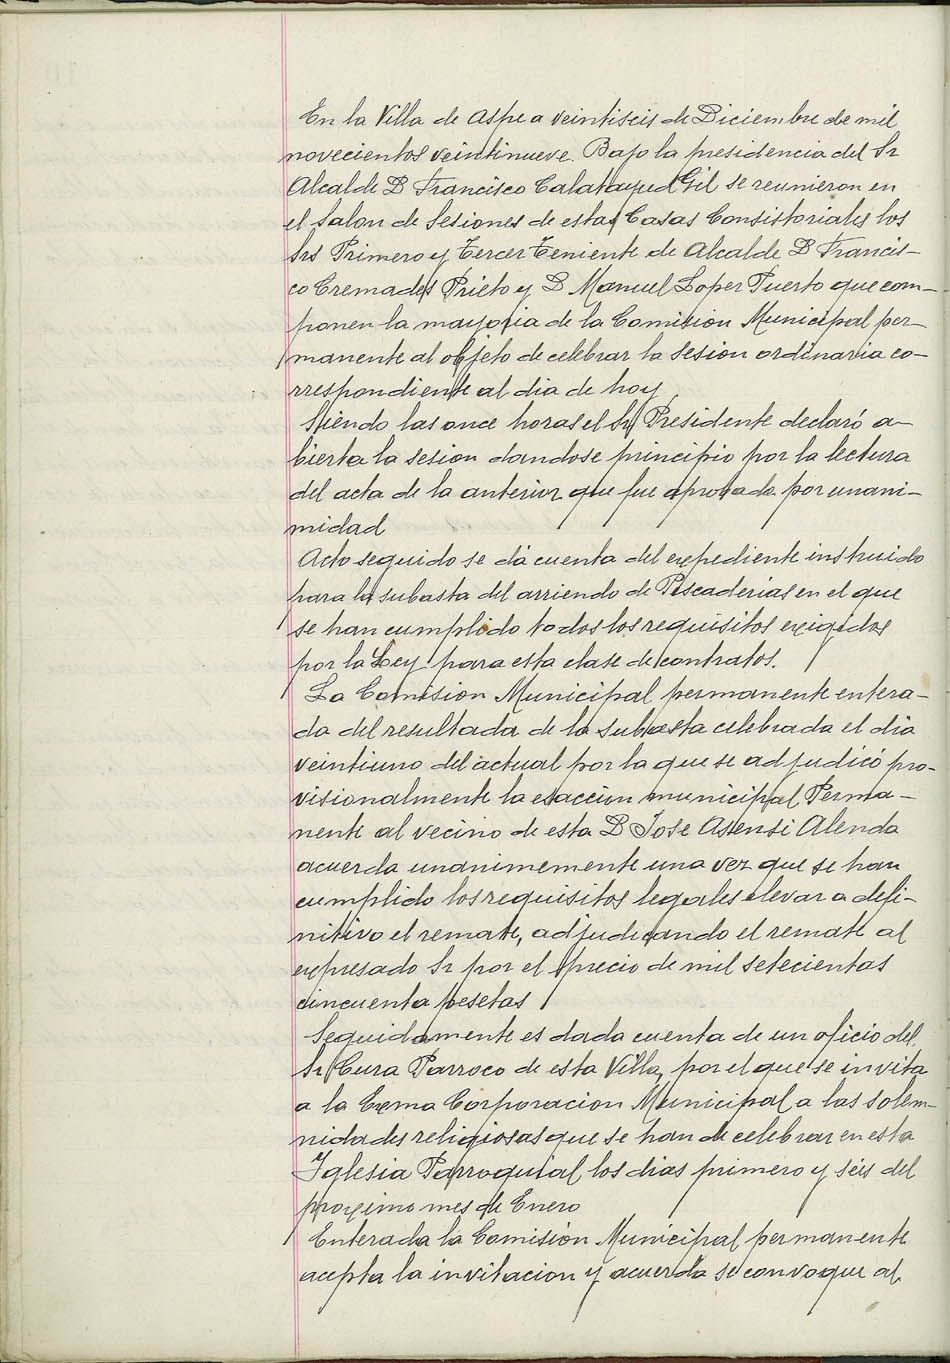 En la Villa de Aspe a veintiseis de Diciembre de mil
novecientos veintinueve. Bajo la presidencia del Sr
Alcalde D Francisco Calatayud Gil se reunieron en
el Salon de Sesiones de estas Casas Consistoriales los
Srs Primero y Tercer Teniente de Alcalde D Francis-
co Cremades Prieto y D Manuel Lopez Puerto que com-
ponen la mayoria de la Comision Municipal per-
manente al objeto de celebrar la sesion ordinaria co-
rrespondiente al dia de hoy
Siendo las once horas el Sr Presidente declaró a-
bierta la sesion dandose principio por la lectura
del acta de la anterior que fue aprobada por unani-
midad
Acto seguido se dá cuenta del expediente instruido
para la subasta del arriendo de Pescaderias en el que
se han cumplido todos los requisitos exigidos
por la Ley para esta clase de contratos.
La Comision Municipal permanente entera-
da del resultado de la subasta celebrada el dia
veintiuno del actual por la que se adjudicó pro-
visionalmente la exaccion municipal Perma-
nente al vecino de esta D Jose Asensi Alenda
acuerda unanimemente una vez que se han
cumplido los requisitos legales elevar a defi-
nitivo el remate, adjudicando el remate al
expresado Sr por el precio de mil setecientas
cincuenta pesetas
Seguidamente es dada cuenta de un oficio del
Sr Cura Parroco de esta Villa, por el que se invita
a la Exma Corporacion Municipal a las solem-
nidades religiosas que se han de celebrar en esta
Iglesia Parroquial los dias primero y seis del
proximo mes de Enero
Enterada la Comisión Municipal permanente
acepta la invitacion y acuerda se convoque al